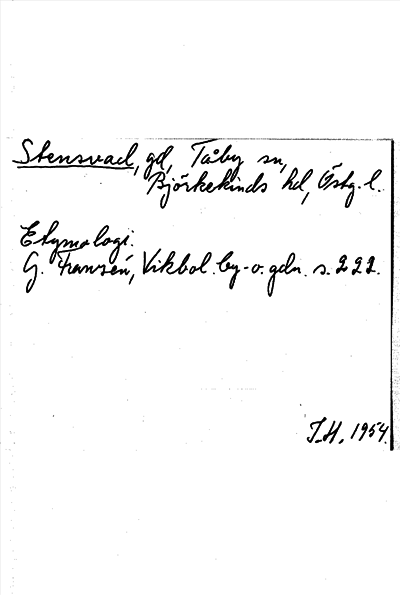 Stensvad, gd, Tåby sn,
Björkekinds hd, Östg. l.
Etymologi.
G. Franzén, Vikbol. by- o. gdn. s. 222.
J.H. 1954.